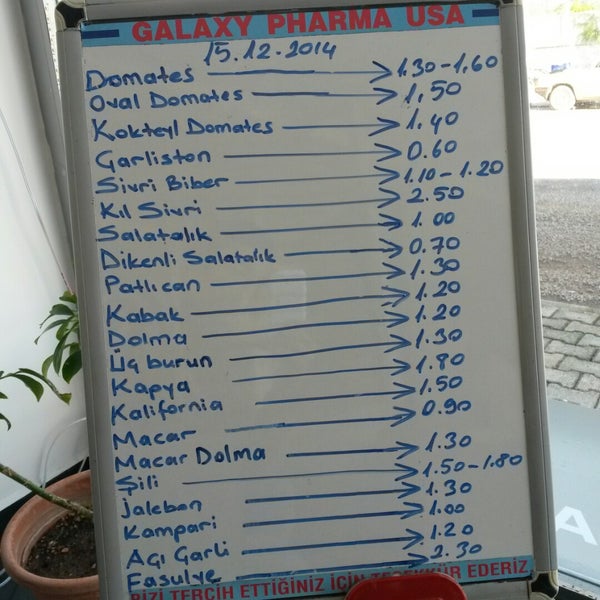 GALAXY PHARMA USA
15.12.2014
Domates → 1.30-1.60
Oval Domates → 1.50
Kokteyl Domates → 1.40
Garliston → 0.60
Sivri Biber → 1.10-1.20
Kıl Sivri → 2.50
Salatalık → 1.00
Dikenli Salatalık → 0.70
Patlıcan → 1.30
Kabak → 1.20
Dolma → 1.20
Üçburun → 1.30
Kapya → 1.80
Kalifornia → 1.50
Macar → 0.90
Macar Dolma → 1.30
Şili → 1.50-1.80
Jalebon → 1.30
Kampari → 1.00
Açı Garli → 1.20
Fasulye → 2.30
BİZİ TERCİH ETTİĞİNİZ İÇİN TEŞEKKÜR EDERİZ